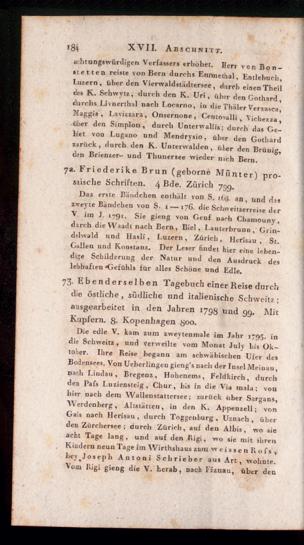 184 XVII. Abschnitt.
achtungswürdigen Verfassers erhöhet. Herr von Bon-
stetten reiste von Bern durchs Emmethal, Entlebuch,
Luzern, über den Vierwaldstädtersee, durch einen Theil
des K. Schwyz, durch den K. Uri, über den Gothard,
durchs Livnerthal nach Locarno, in die Thäler Verzasca,
Maggia, Lavizzara, Onsernone, Centovalli, Vichezza,
über den Simplon, durch Unterwallis; durch das Ge-
biet von Lugano und Mendrysio, über den Gothard
zurück, durch den K. Unterwalden, über den Brünig,
den Brienzer- und Thunersee wieder nach Bern.
72. Friederike Brun (geborne Münter) pro-
saische Schriften. 4 Bde. Zürich 799.
Das erste Bändchen enthält von S. 169. an, und das
zweyte Bändchen von S. 1—176. die Schweitzerreise der
V. im J. 1791. Sie gieng von Genf nach Chamouny,
durch die Waadt nach Bern, Biel, Lauterbrunn, Grin-
delwald und Hasli, Luzern, Zürich, Herisau, St.
Gallen und Konstanz. Der Leser findet hier eine leben-
dige Schilderung der Natur und den Ausdruck des
lebhaften Gefühls für alles Schöne und Edle.
73. Ebenderselben Tagebuch einer Reise durch
die östliche, südliche und italienische Schweitz;
ausgearbeitet in den Jahren 1798 und 99. Mit
Kupfern. 8. Kopenhagen 800.
Die edle V. kam zum zweytenmale im Jahr 1795. in
die Schweitz, und verweilte vom Monat July bis Ok-
tober. Ihre Reise begann am schwäbischen Ufer des
Bodensees. Von Ueberlingen gieng's nach der Insel Meinau,
nach Lindau, Bregenz, Hohenems, Feldkirch, durch
den Pass Luziensteig, Chur, bis in die Via mala; von
hier nach dem Wallenstattersee; zurück über Sargans,
Werdenberg, Altstätten, in den K. Appenzell; von
Gais nach Herisau, durch Toggenburg, Utznach, über
den Zürchersee; durch Zürich, auf den Albis, wo sie
acht Tage lang, und auf den Rigi, wo sie mit ihren
Kindern neun Tage im Wirthshaus zum weissen Ross,
bey Joseph Antoni Schrieber aus Art, wohnte.
Vom Rigi gieng die V. herab, nach Fiznau, über den